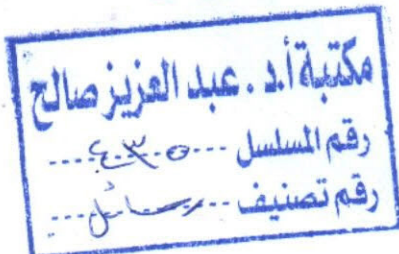 مكتبة أ.د. عبد العزيز صالح
رقم المسلسل ٤٣٥
رقم تصنيف رسائل